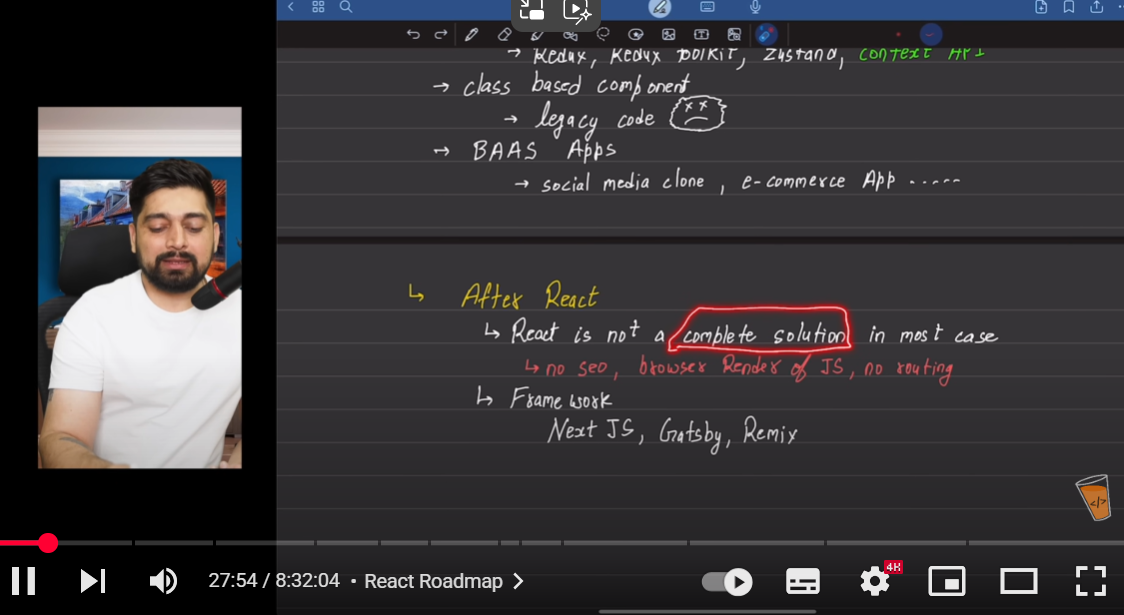 → Redux, Redux toolkit, Zustand, Context API
→ class based component
→ legacy code
→ BAAS Apps
→ social media clone, e-commerce App .....
↳ After React
↳ React is not a complete solution in most case
↳ no seo, browser Render of JS, no routing
↳ Frame work
Next JS, Gatsby, Remix
</>
27:54 / 8:32:04 • React Roadmap >
4K